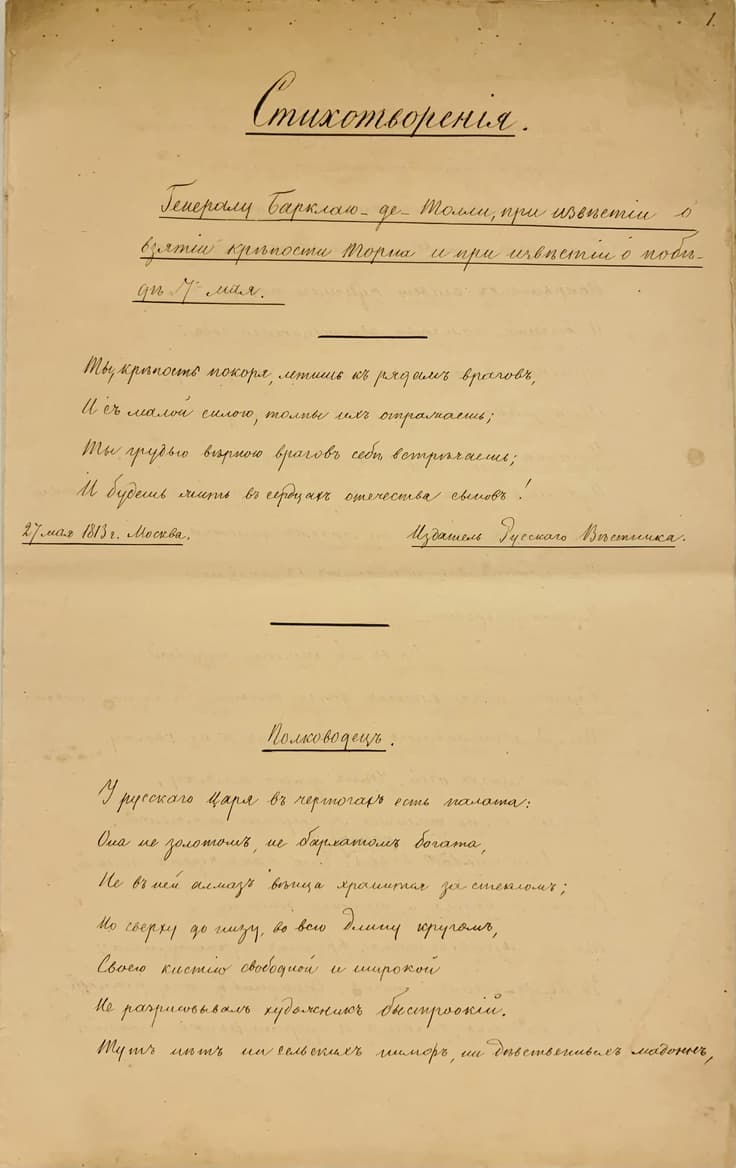 1.
Стихотворенія.
Генералу Барклаю-де-Толли, при извѣстіи о
взятіи крѣпости Торна и при извѣстіи о побѣ-
дѣ 7 мая.
Ты, крѣпость покоря, летишь къ рядамъ враговъ,
И съ малой силою, толпы ихъ отражаешь;
Ты грудью вѣрною враговъ себѣ встрѣчаешь;
И будешь жить въ сердцахъ отечества сыновъ!
27 мая 1813 г. Москва.
Издатель Русскаго Вѣстника.
Полководецъ.
У русскаго Царя въ чертогахъ есть палата:
Она не золотомъ, не бархатомъ богата,
Не въ ней алмазъ вѣнца хранится за стекломъ;
Но сверху до низу, во всю длину кругомъ,
Своею кистію свободной и широкой
Ее разрисовывалъ художникъ быстроокій.
Тутъ нѣтъ ни сельскихъ нимфъ, ни дѣвственныхъ мадоннъ,